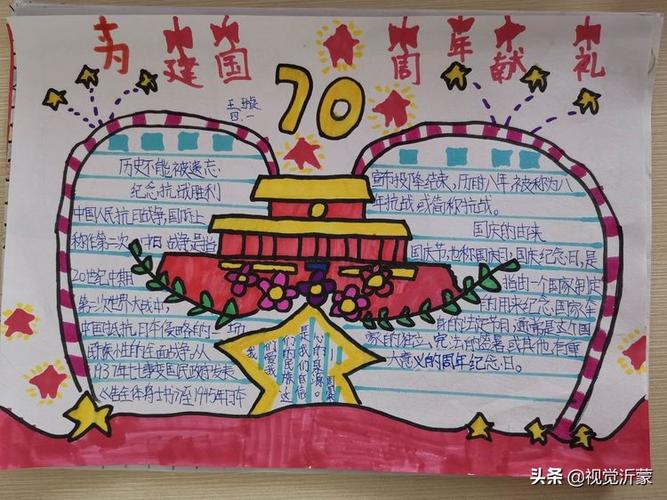 为建国70周年献礼
四.一
历史不能被遗忘
纪念抗战胜利
中国人民抗日战争,国际上
称作第二次中日战争,是指
20世纪中期
第二次世界大战中,
中国抵抗日本侵略的一场
民族性的全面战争,从
1937年七事变国民政府发表
《告全体将士书》至1945年日本
宣布投降结束,历时八年,被称为八
年抗战,或简称抗战。
国庆的由来
国庆节,也称国庆日、国庆纪念日,是
指由一个国家制定
的用来纪念国家本
身的法定节日,通常是这个国
家的独立、宪法的签署,或其他有重
大意义的周年纪念日。
头条 @视觉沂蒙